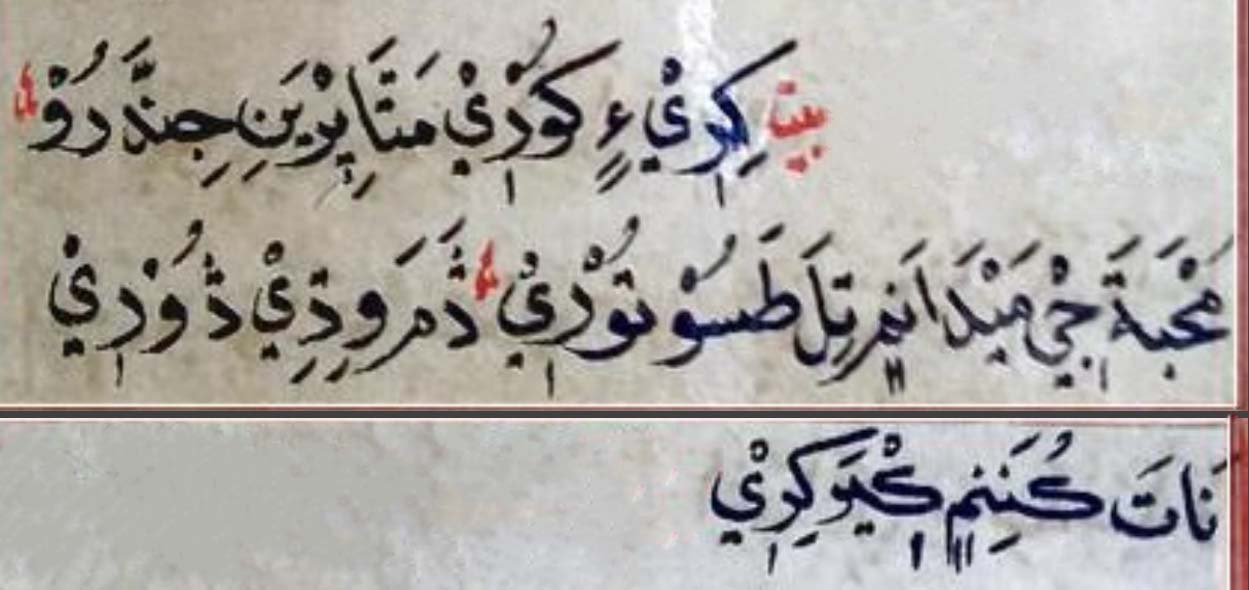 بيت كِرِيْ ءٍ كوُڏِيْ مَتَا پِرْيَنِ جِندَّرُوْ
مُحْبَةَ جِيْ مَيْدَانم تِلَ طَسُوْ توُرِيْ ڌَمَرَ وِڌِيْ ڌُوْرِيْ
نَاتَ كُنَنِم كْيَو كِرِيْ